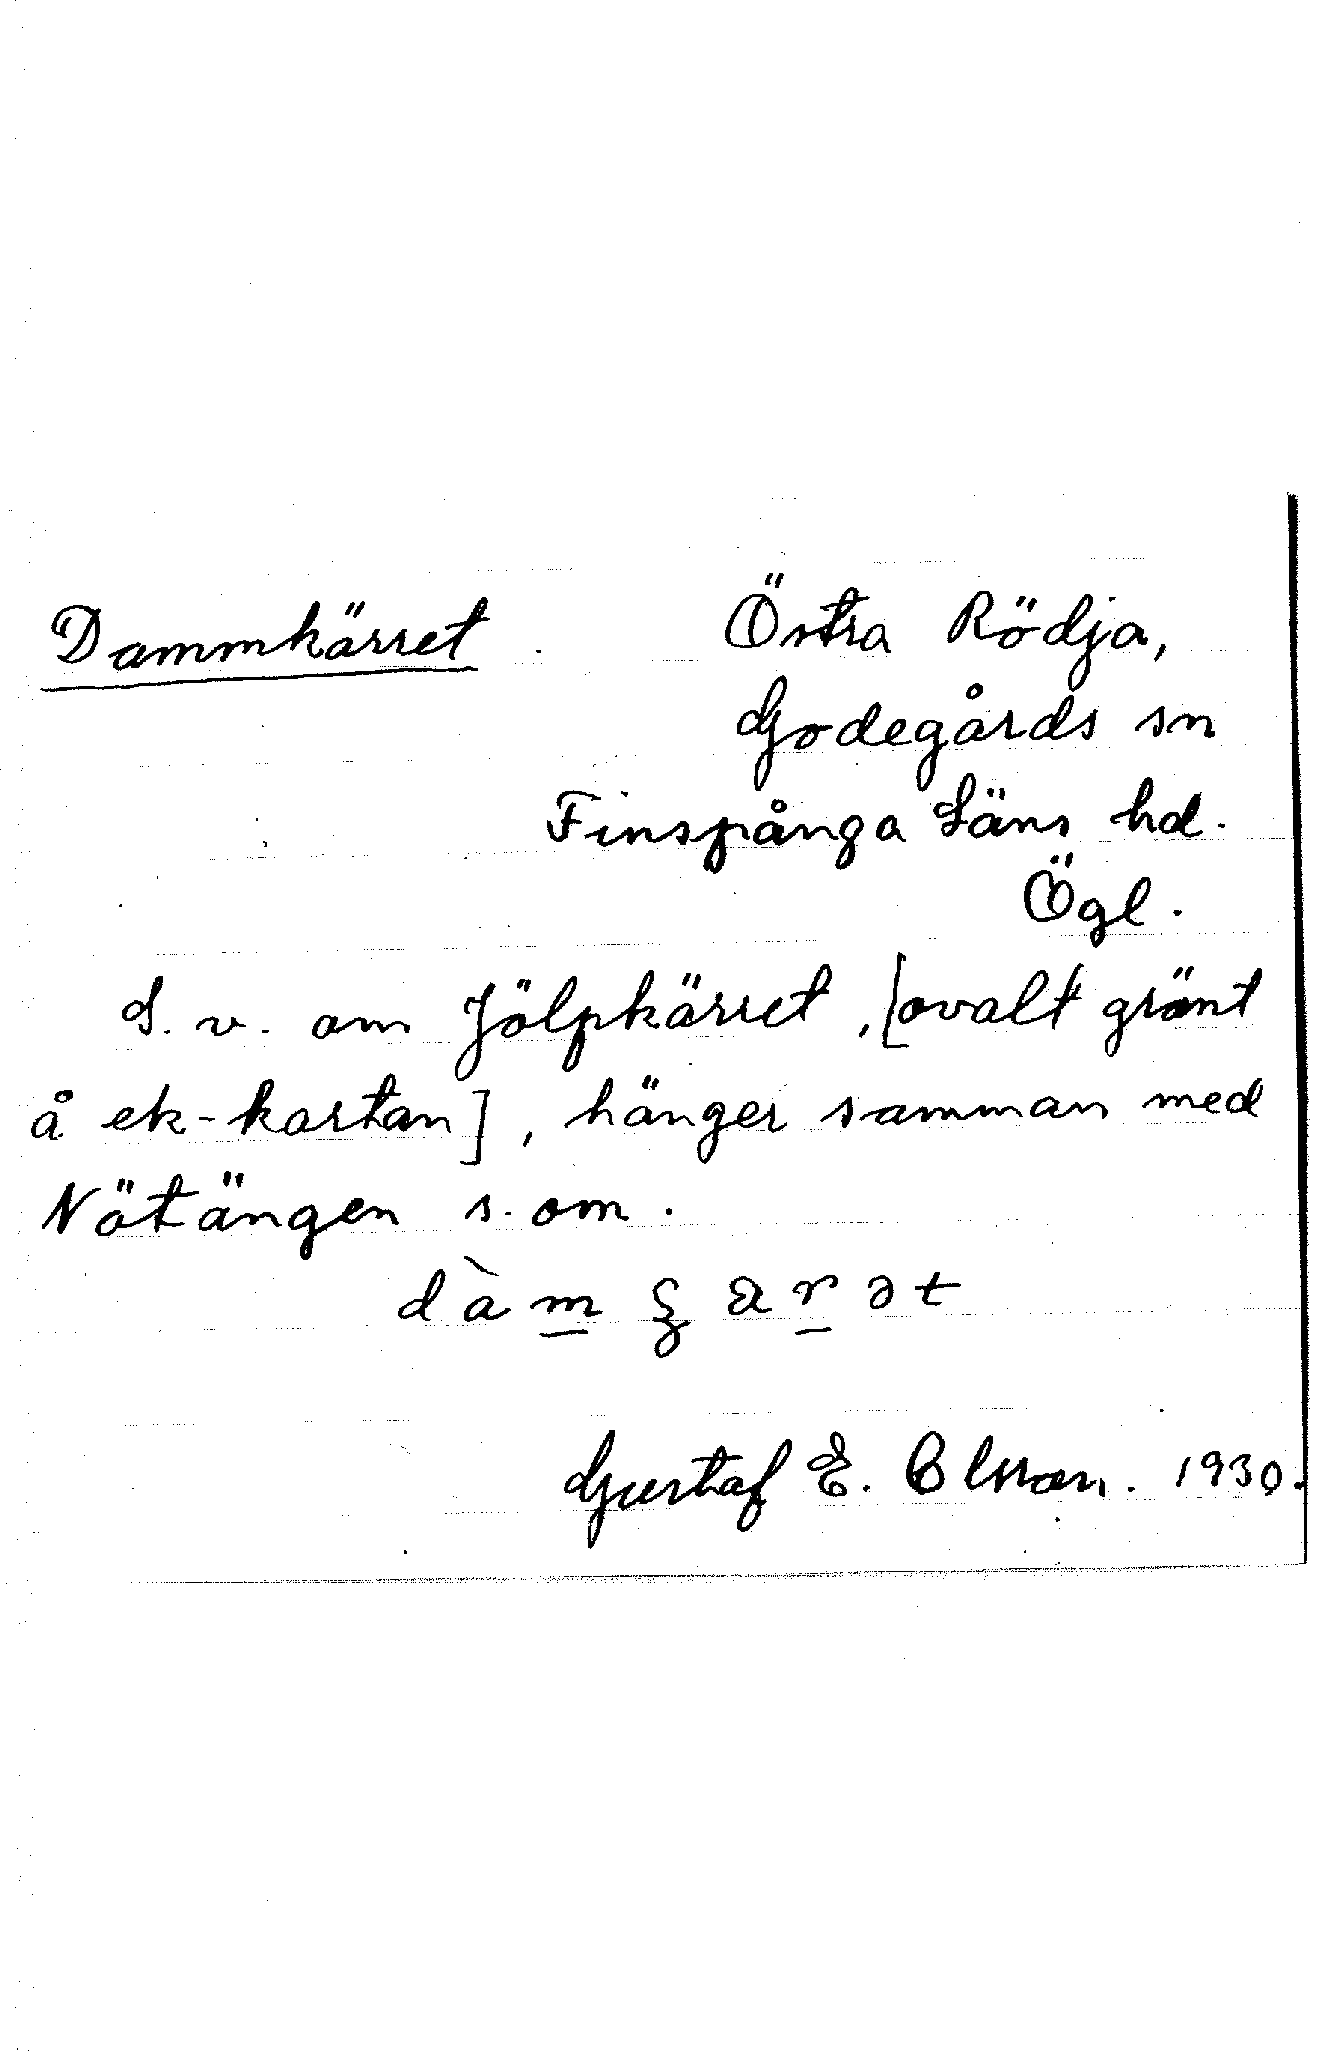 Dammkärret. Östra Rödja,
Godegårds sn
Finspånga Läns hd.
Ögl.
S. v. om Jölpkärret, [ovalt grönt
å ek-kartan], hänger samman med
Nötängen s. om.
Gustaf E. Olsson. 1930.